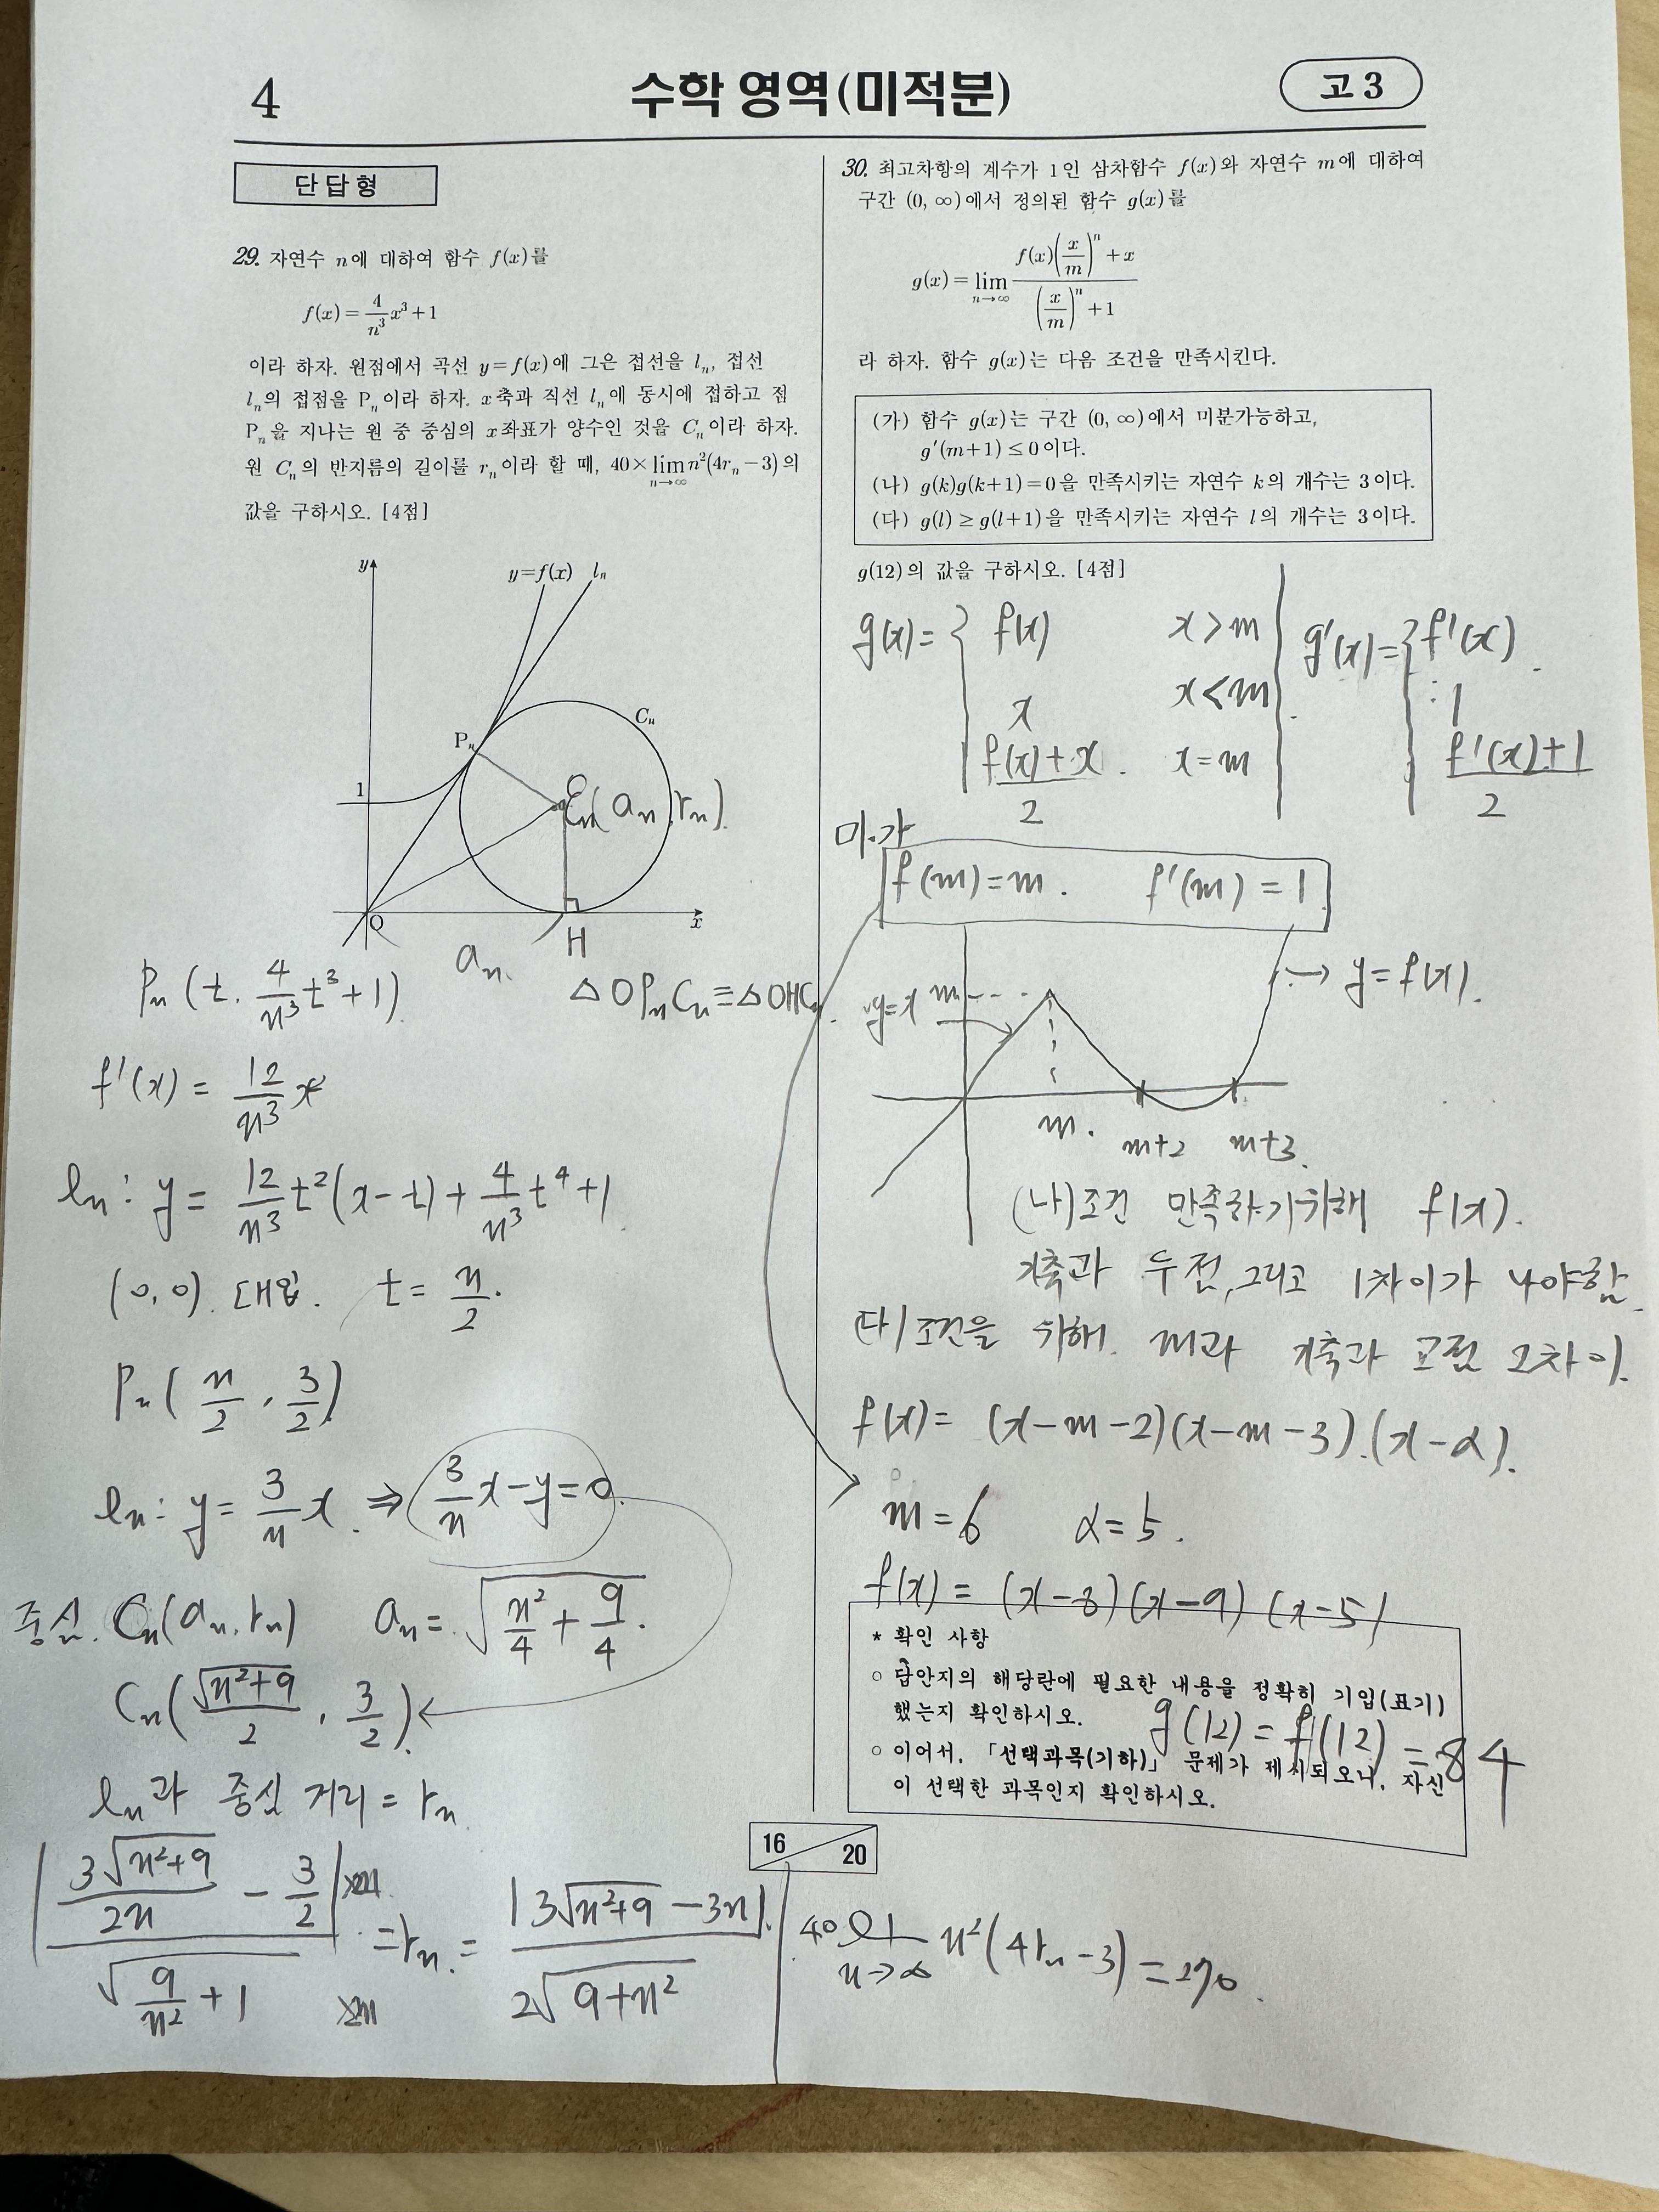 4
수학 영역(미적분)
고 3
단 답 형
29. 자연수 n에 대하여 함수 f(x)를
f(x) = \frac{4}{n^3}x^3+1
이라 하자. 원점에서 곡선 y=f(x)에 그은 접선을 l_n, 접선
l_n의 접점을 P_n이라 하자. x축과 직선 l_n에 동시에 접하고 점
P_n을 지나는 원 중 중심의 x좌표가 양수인 것을 C_n이라 하자.
원 C_n의 반지름의 길이를 r_n이라 할 때, 40×\lim_{n→∞}n^2(4r_n-3)의
값을 구하시오. [4점]
y
y=f(x)
l_n
C_n
P_n
C_n(a_n, r_n).
1
O
H
x
a_n.
P_n(t. \frac{4}{n^3}t^3+1).
△OP_nC_n≡△OHC_n.
f'(x) = \frac{12}{n^3}x^2
l_n: y = \frac{12}{n^3}t^2(x-t)+\frac{4}{n^3}t^4+1
(0,0). 대입. t = \frac{n}{2}.
P_n(\frac{n}{2}, \frac{3}{2})
l_n: y = \frac{3}{n}x. ⇒ \frac{3}{n}x-y=0.
중심. C_n(a_n, r_n) a_n = \sqrt{\frac{n^2}{4}+\frac{9}{4}}.
C_n(\frac{\sqrt{n^2+9}}{2}, \frac{3}{2}).
l_n과 중심 거리 = r_n
\frac{|\frac{3\sqrt{n^2+9}}{2n}-\frac{3}{2}|}{\sqrt{\frac{9}{n^2}+1}} = r_n. = \frac{|3\sqrt{n^2+9}-3n|}{2\sqrt{9+n^2}}
40 \lim_{n→∞} n^2(4r_n-3) = 270.
30. 최고차항의 계수가 1인 삼차함수 f(x)와 자연수 m에 대하여
구간 (0, ∞)에서 정의된 함수 g(x)를
g(x) = \lim_{n→∞}\frac{f(x)(\frac{x}{m})^n+x}{(\frac{x}{m})^n+1}
라 하자. 함수 g(x)는 다음 조건을 만족시킨다.
(가) 함수 g(x)는 구간 (0, ∞)에서 미분가능하고,
g'(m+1) ≤ 0이다.
(나) g(k)g(k+1)=0을 만족시키는 자연수 k의 개수는 3이다.
(다) g(l) ≥ g(l+1)을 만족시키는 자연수 l의 개수는 3이다.
g(12)의 값을 구하시오. [4점]
g(x) = { f(x) x>m
x x<m
\frac{f(x)+x}{2}. x=m
g'(x) = { f'(x).
1
\frac{f'(x)+1}{2}
미.가
f(m)=m. f'(m)=1
→ y=f(x).
y=x
m
m.
m+2
m+3.
(나)조건 만족하기위해 f(x).
x축과 두점, 그리고 1차이가 나야함.
(다)조건을 위해. m과 x축과 교점 2차이.
f(x) = (x-m-2)(x-m-3).(x-α).
m=6 α=5.
f(x) = (x-8)(x-9)(x-5)
* 확인 사항
○ 답안지의 해당란에 필요한 내용을 정확히 기입(표기)
했는지 확인하시오.
g(12) = f(12) = 84
○ 이어서, 「선택과목(기하)」 문제가 제시되오니, 자신
이 선택한 과목인지 확인하시오.
16
20